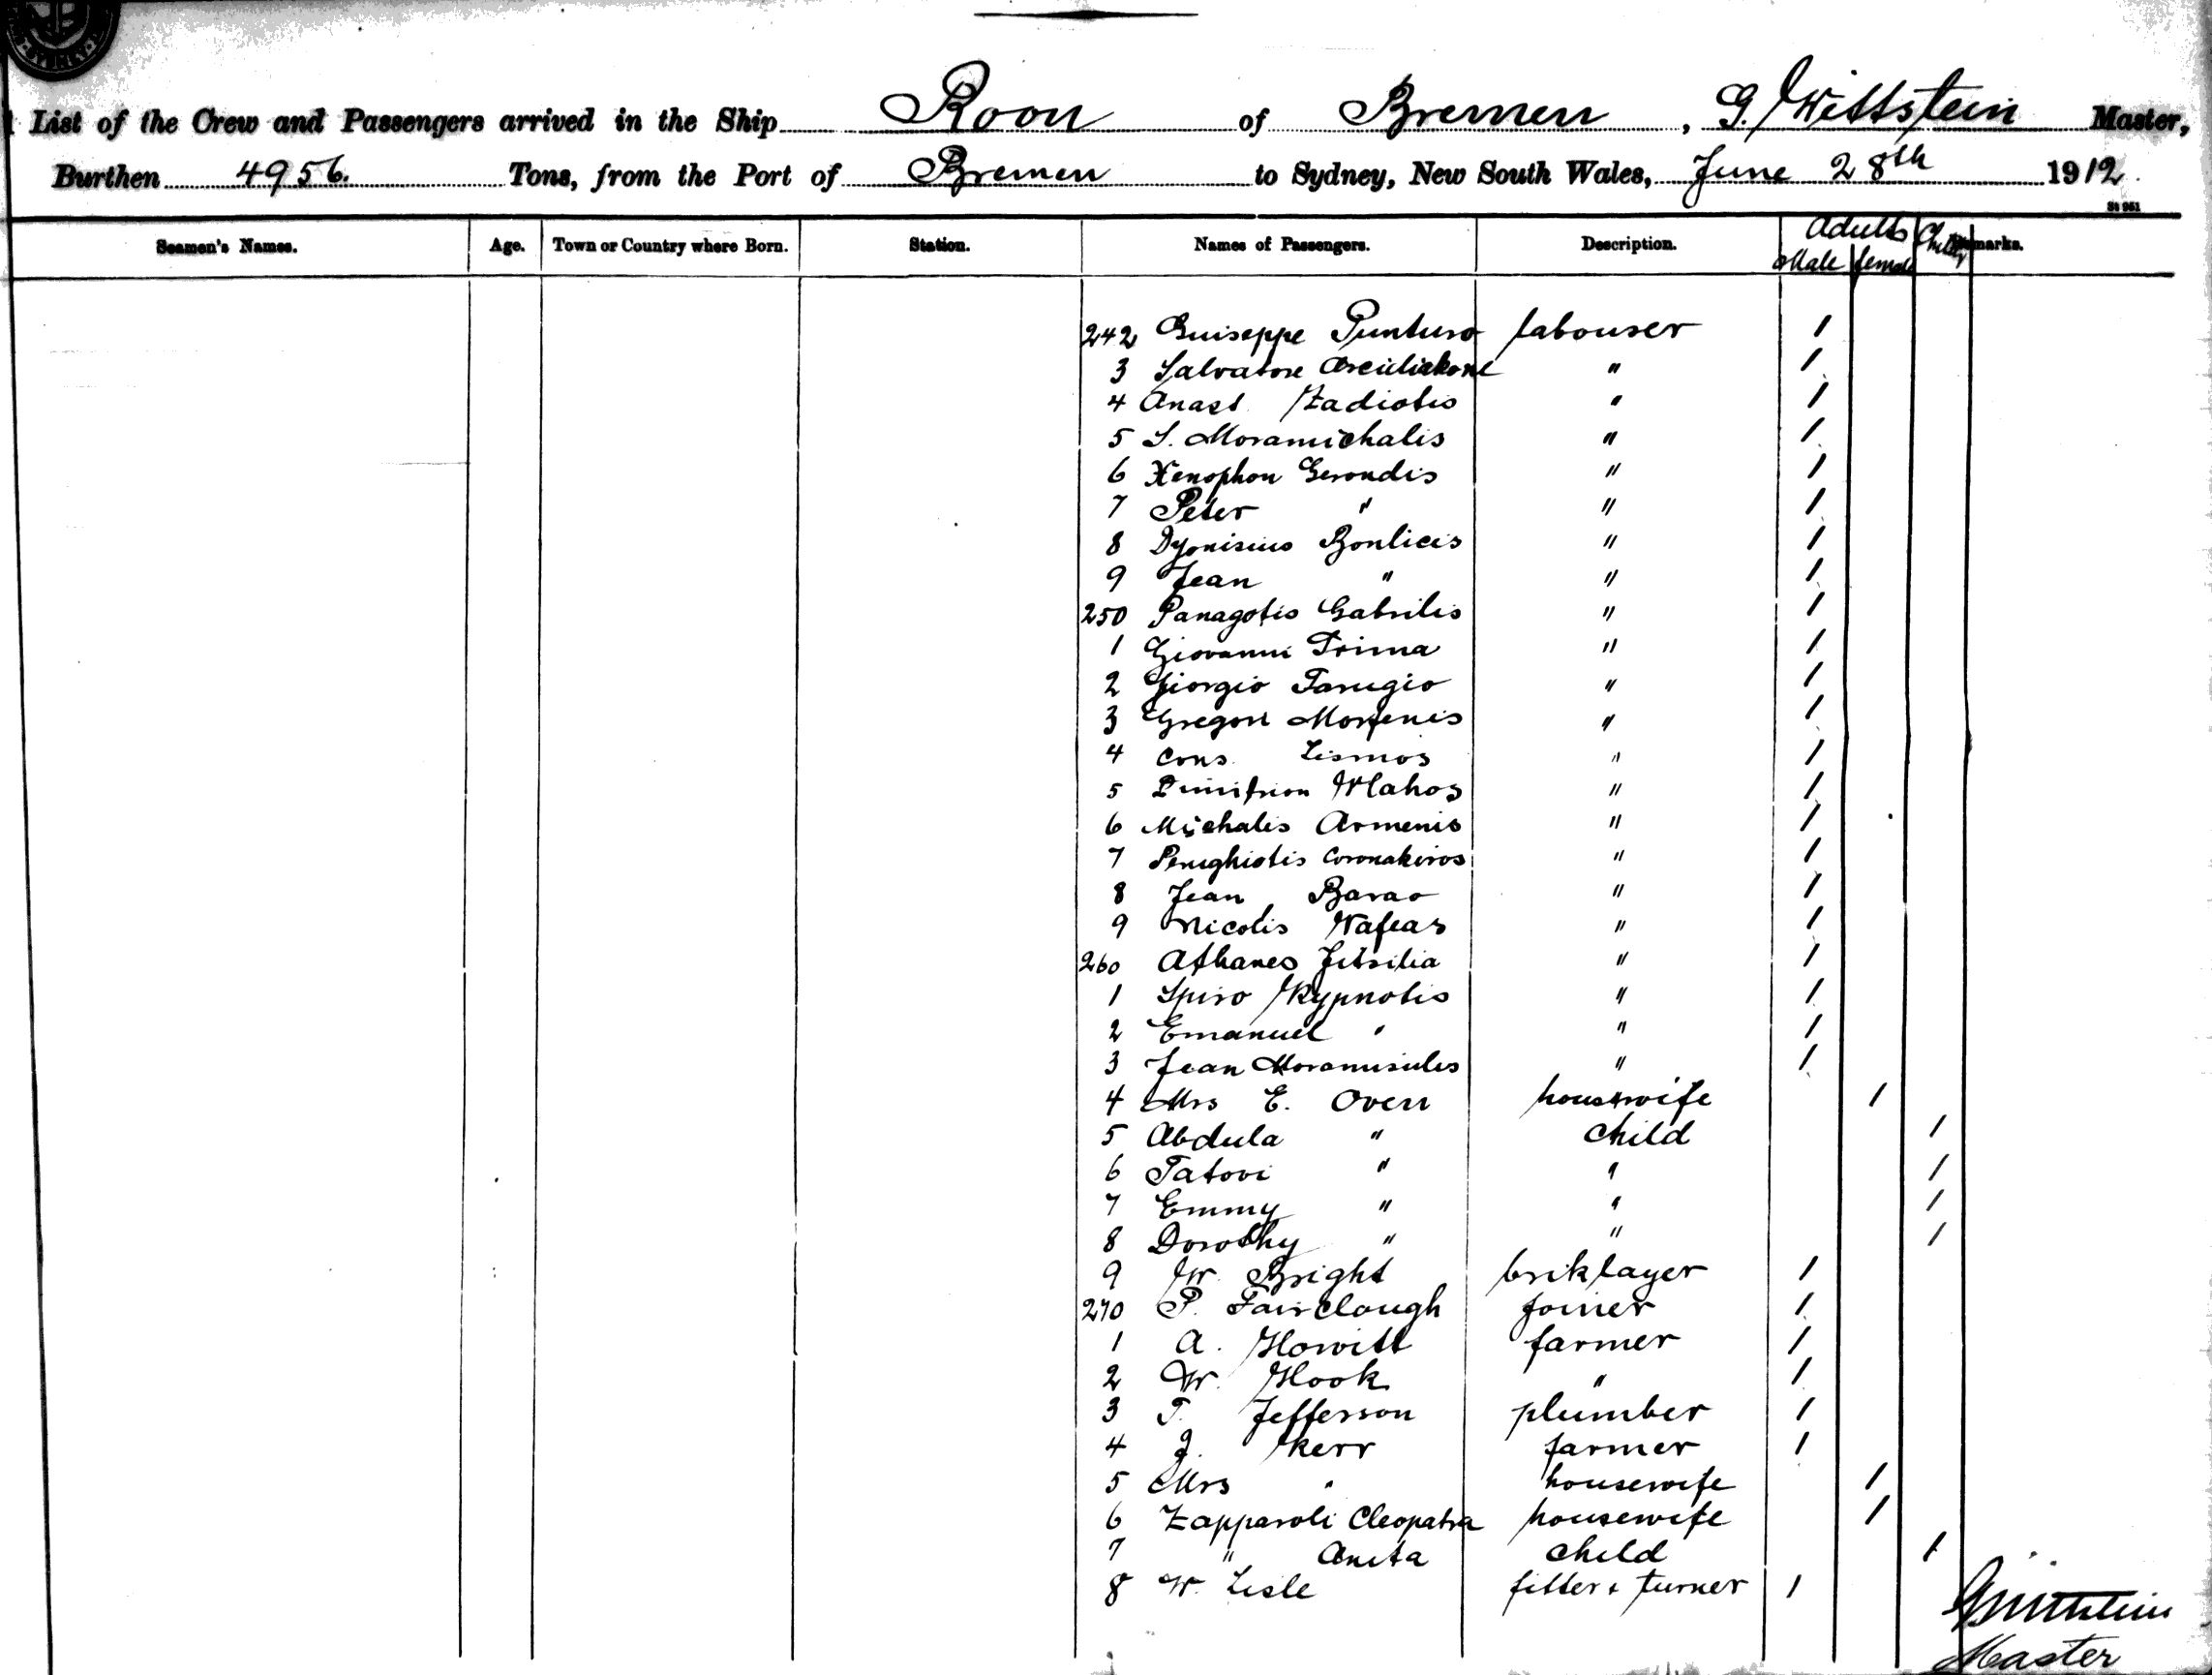 List of the Crew and Passengers arrived in the Ship Roon of Bremen, G. Wittstein Master,
Burthen 4956. Tons, from the Port of Bremen to Sydney, New South Wales, June 28th 1912.
St 951
Seamen's Names. Age. Town or Country where Born. Station. Names of Passengers. Description. Adults Male female Remarks.
242 Guiseppe Punturo labourer 1
3 Salvatore " 1
4 Anast. Zadiotis " 1
5 S. Moramichalis " 1
6 Xenophon Gerondis " 1
7 Peter " " 1
8 Dyonisius Bonlieis " 1
9 Jean " " 1
250 Panagotis Gabrilis " 1
1 Giovanni Trima " 1
2 Giorgio Farugio " 1
3 Gregori " 1
4 Cons. Lismos " 1
5 Dimitrion Wlahos " 1
6 Michalis Armenis " 1
7 Penighiotis Coronakiros " 1
8 Jean Barao " 1
9 Nicolis Nafeas " 1
260 Athanes " 1
1 Spiro Kypnotis " 1
2 Emanuel " " 1
3 Jean " 1
4 Mrs E. Oven housewife 1
5 Abdula " child 1
6 Tatovi " " 1
7 Emmy " " 1
8 Dorothy " " 1
9 W. Bright briklayer 1
270 P. Fairclough joiner 1
1 A. Howitt farmer 1
2 W. Hook " 1
3 T. Jefferson plumber 1
4 J. Kerr farmer 1
5 Mrs " housewife 1
6 Zapparoli Cleopatra housewife 1
7 " Anita child 1
8 W. Lisle fitter + turner 1
G Wittstein
Master